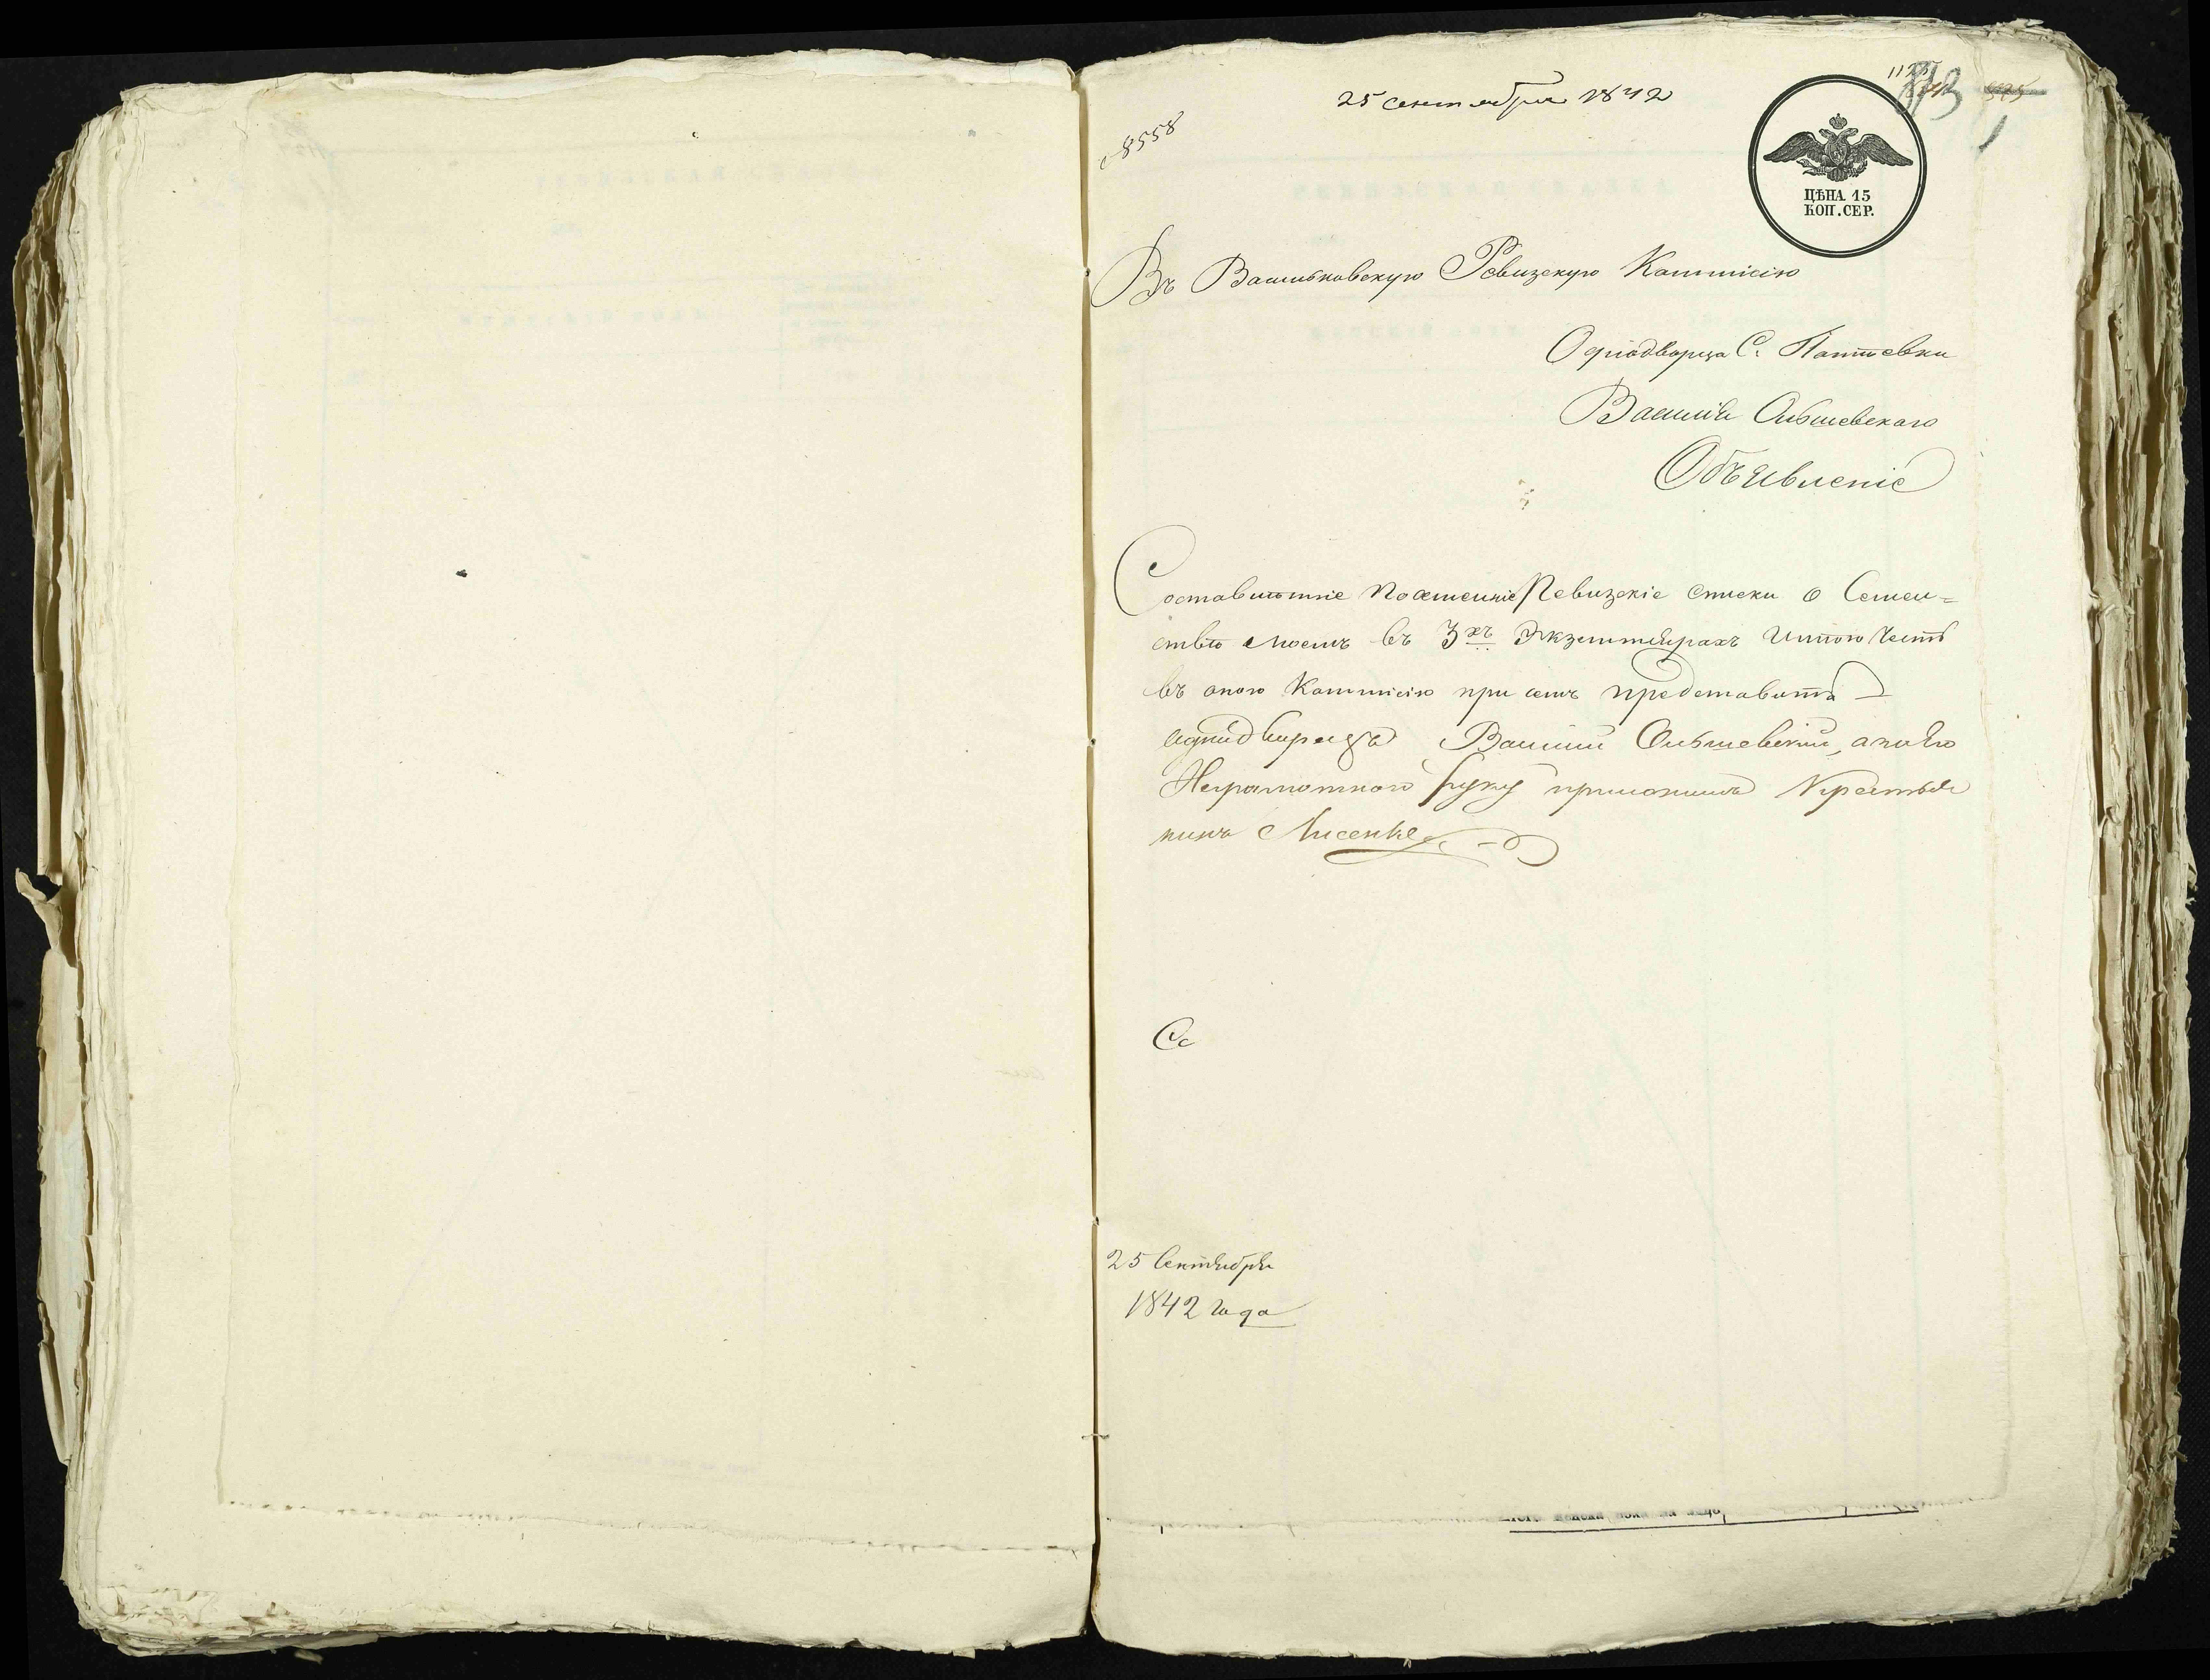 25 сентября 1842
8558
1
ЦѢНА 15
КОП. СЕР.
Въ Васильковскую Ревизскую Коммисію
Однодворца С.
Василія Ольшевскаго
Объявленіе
Составленніе Ревизскіе списки о Семей=
ствѣ моемъ въ 3хъ Экземплярахъ Имѣю честь
въ оною Коммисію при семъ представить
однодворецъ Василій Ольшевскій, а по Его
Неграмотною руку приложилъ Крестья
нинъ Лисенко
Сс
25 Сентября
1842 года